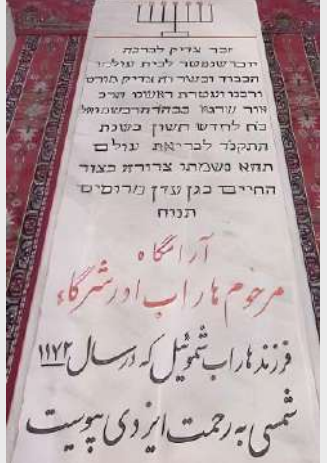 זכר צדיק לברכה
יום שנפטר לבית עולמו
הכבוד ובשר רם צדיק מורנו
ורבנו ועטרת ראשנו הרב
אור שרגא בכהר שמואל
כח לחדש חשון בשנת
התקנד לבריאת עולם
תהא נשמתו צרורה בצור
החיים בגן עדן מרוסים
תנוח
آرامگاه
مرحوم هاراب اورشرگاء
فرزند هاراب شموئیل که در سال ۱۱۷۲
شمسی به رحمت ایزدی پیوست